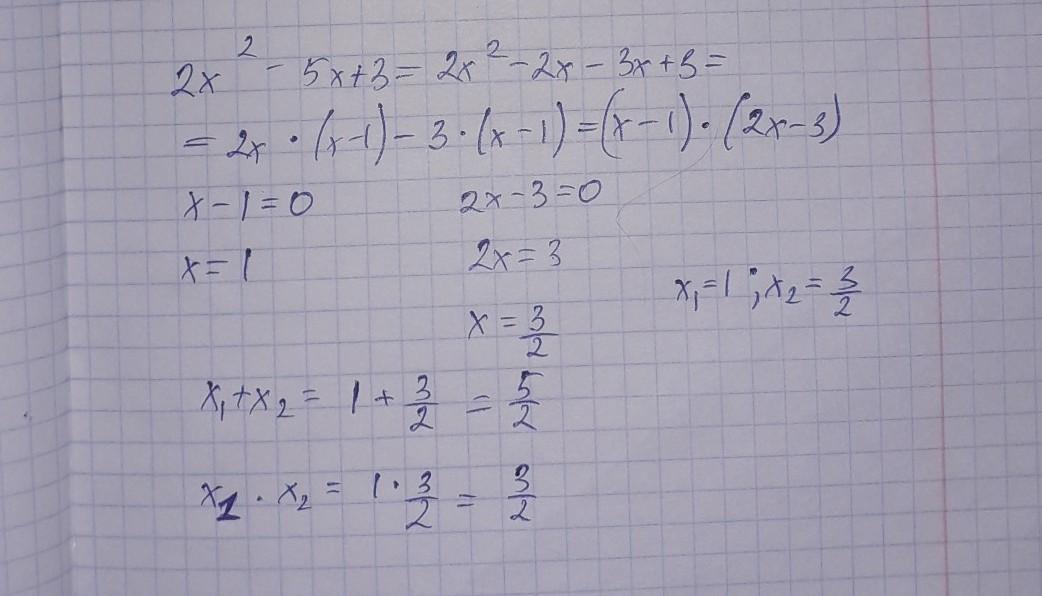 2x² - 5x+3= 2x² - 2x - 3x+3=
= 2x · (x-1) - 3 · (x-1) = (x-1) · (2x-3)
x-1=0 2x-3=0
x=1 2x=3
x₁=1 ; x₂=3/2
x=3/2
x₁+x₂ = 1+3/2 = 5/2
x₁ · x₂ = 1·3/2 = 3/2